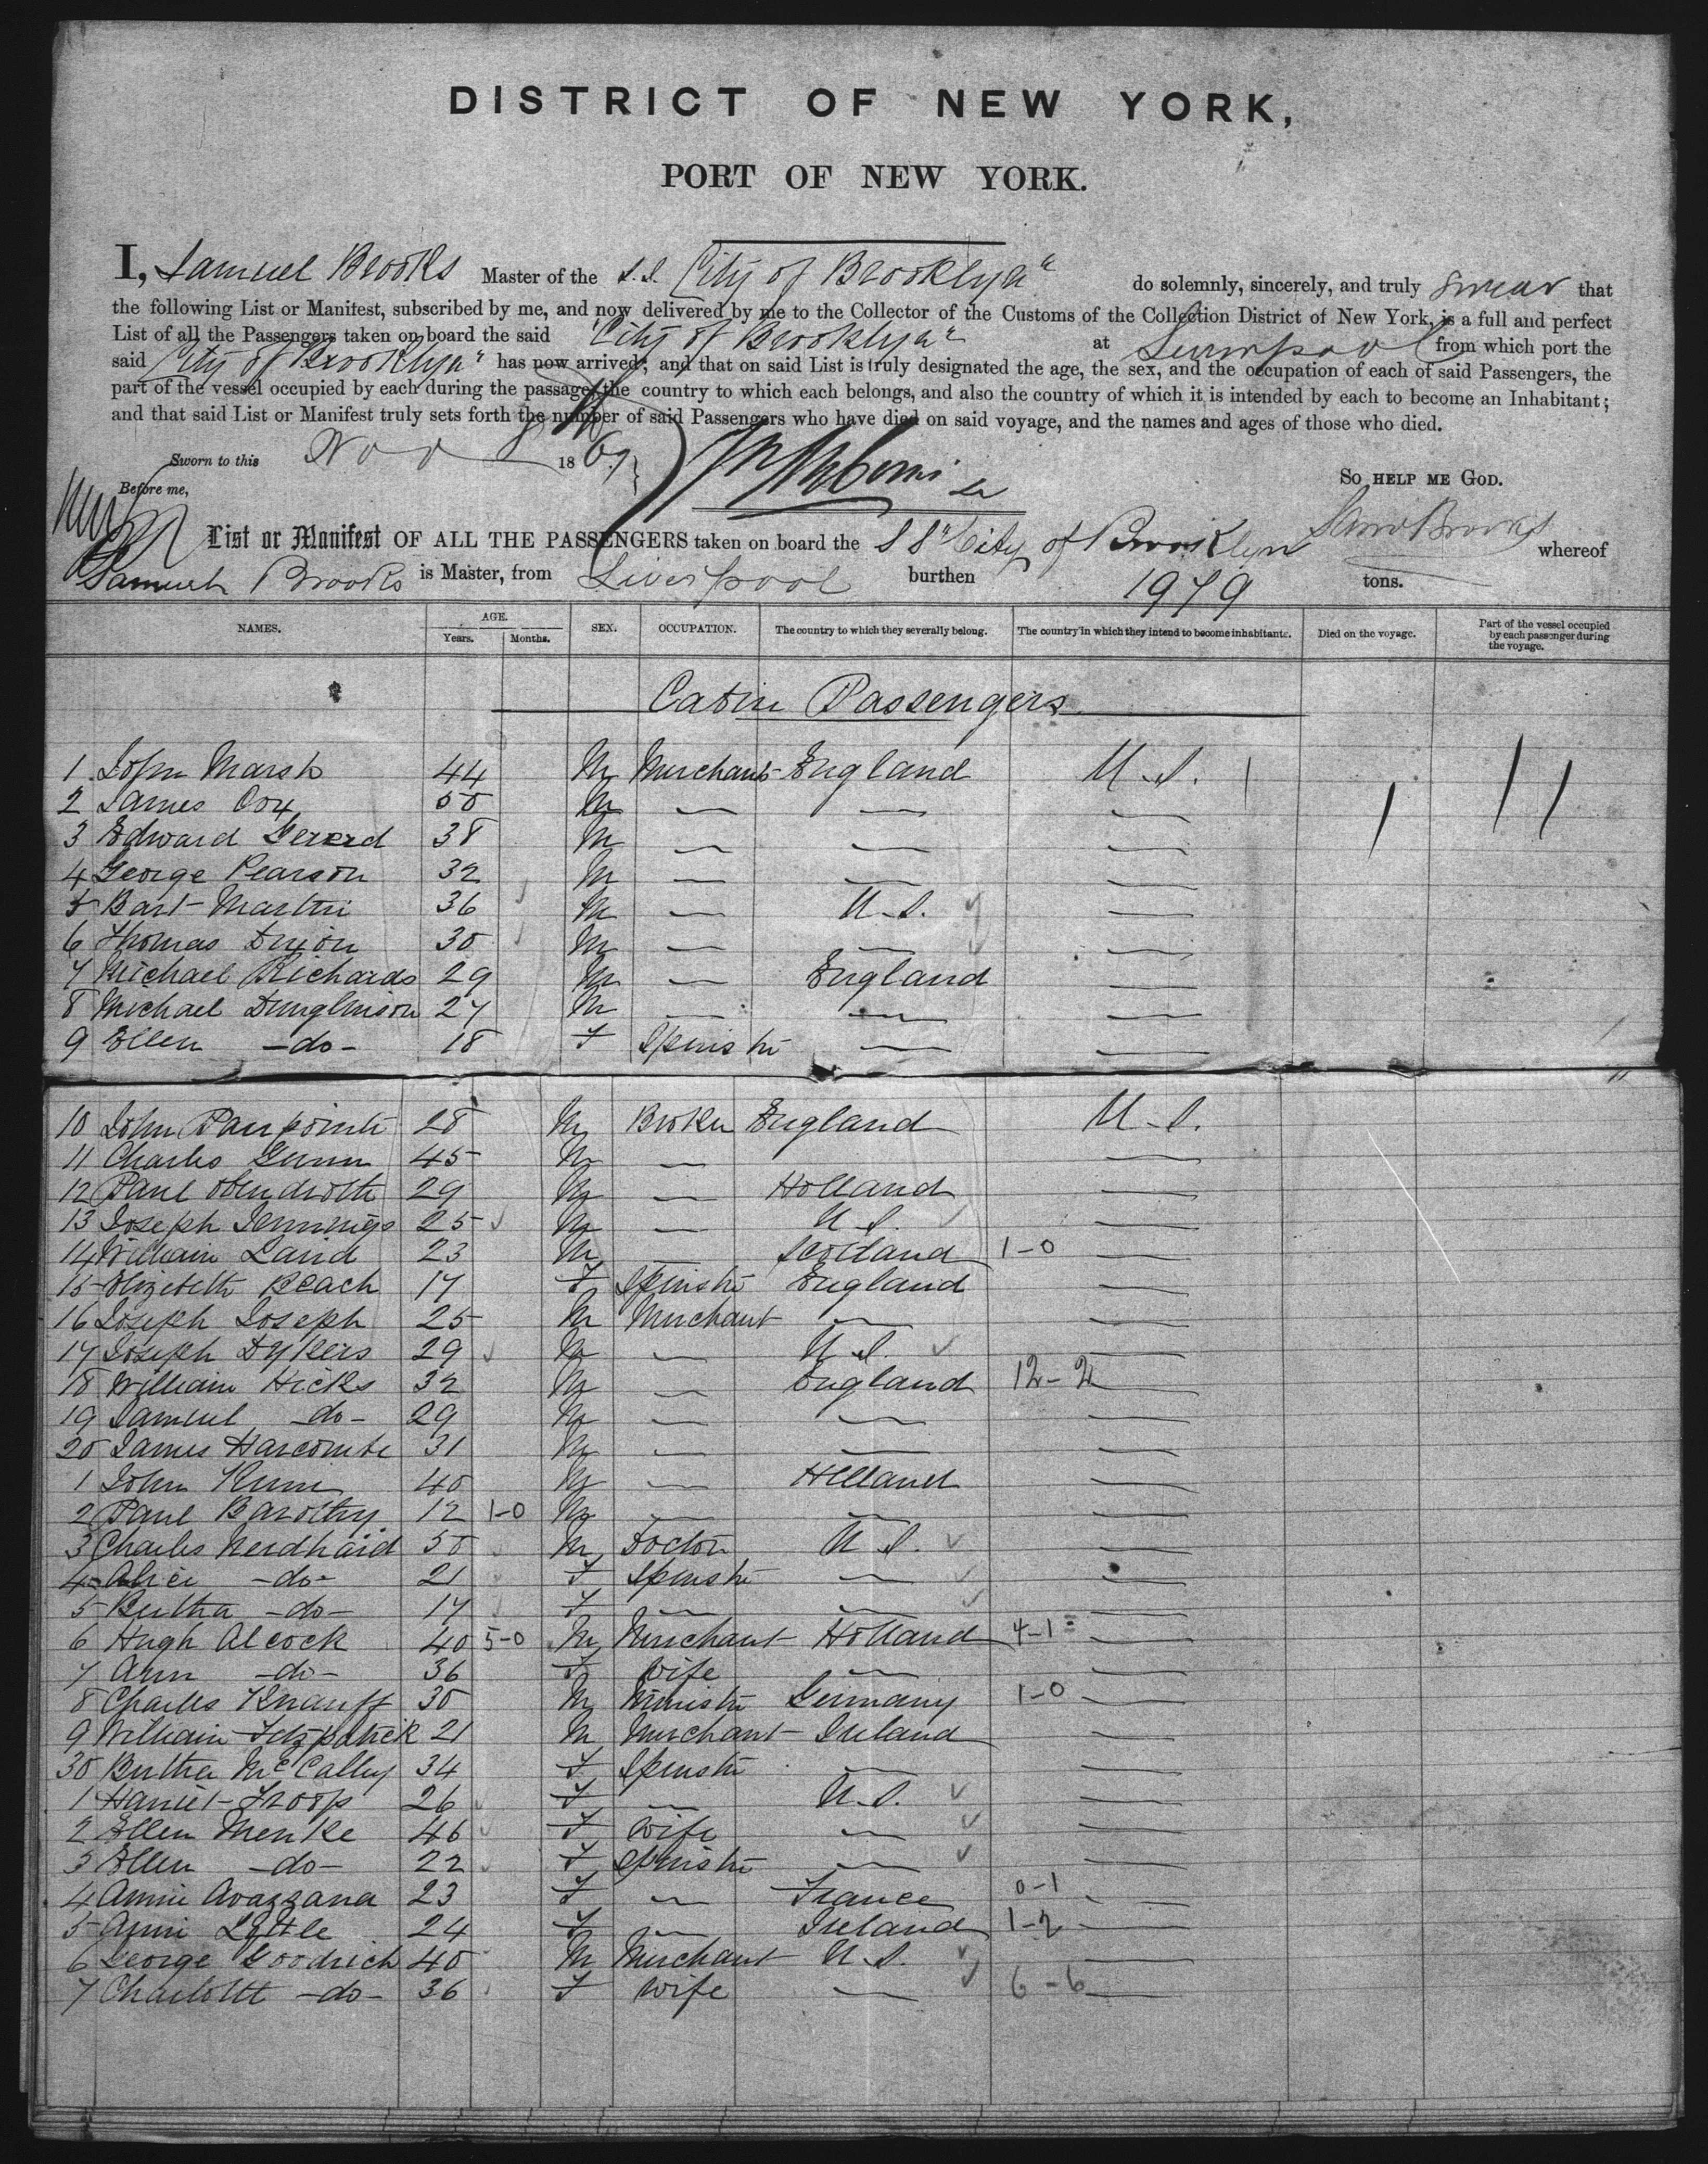 DISTRICT OF NEW YORK,
PORT OF NEW YORK.
I, Samuel Brooks Master of the S.S. "City of Brooklyn" do solemnly, sincerely, and truly swear that
the following List or Manifest, subscribed by me, and now delivered by me to the Collector of the Customs of the Collection District of New York, is a full and perfect
List of all the Passengers taken on board the said "City of Brooklyn" at Liverpool from which port the
said "City of Brooklyn" has now arrived; and that on said List is truly designated the age, the sex, and the occupation of each of said Passengers, the
part of the vessel occupied by each during the passage, the country to which each belongs, and also the country of which it is intended by each to become an Inhabitant;
and that said List or Manifest truly sets forth the number of said Passengers who have died on said voyage, and the names and ages of those who died.
Sworn to this Nov 8 1869
So HELP ME GOD.
Before me,
Saml Brooks
List or Manifest OF ALL THE PASSENGERS taken on board the S S "City of Brooklyn whereof
Samuel Brooks is Master, from Liverpool burthen 1979 tons.
NAMES. AGE. Years. Months. SEX. OCCUPATION. The country to which they severally belong. The country in which they intend to become inhabitants. Died on the voyage. Part of the vessel occupied by each passenger during the voyage.
Cabin Passengers
1 John Marsh 44 M Merchant England U.S.
2 James Cox 50 M — — —
3 Edward Gererd 38 M — — —
4 George Pearson 32 M — — —
5 Bart Martin 36 M — U.S. —
6 Thomas 30 M — — —
7 Michael Richards 29 M — England —
8 Michael Dunglinson 27 M — — —
9 Ellen -do- 18 F Spinster — —
10 John Panpointe 28 M Broker England U.S.
11 Charles Gunn 45 M — —
12 Paul Obendroth 29 M — Holland —
13 Joseph Jennings 25 M — U.S. —
14 William Laird 23 M — Scotland 1-0 —
15 Elizebeth Beach 17 F Spinster England —
16 Joseph Joseph 25 M Merchant — —
17 Joseph Dykers 29 M — U.S. —
18 William Hicks 32 M — England 12-2 —
19 Samuel -do- 29 M — — —
20 James Harcombe 31 M — — —
1 John Kum 40 M — Holland —
2 Paul Barothy 12 1-0 M — — —
3 Charles Nerdhaid 50 M Doctor U.S. —
4 Alice -do- 21 F Spinster — —
5 Bertha -do- 17 F — — —
6 Hugh Alcock 40 5-0 M Merchant Holland 4-1 —
7 Ann -do- 36 F Wife — —
8 Charles Knauff 30 M Minister Germany 1-0 —
9 William Fitzpatrick 21 M Merchant Ireland —
30 Bertha McCalley 34 F Spinster — —
1 Harriet Troop 26 F — U.S. —
2 Ellen Menke 46 F Wife — —
3 Ellen -do- 22 F Spinster — —
4 Annie Avazzana 23 F — France 0-1 —
5 Annie Little 24 F — Ireland 1-2 —
6 George Goodrich 40 M Merchant U.S. —
7 Charlotte -do- 36 F Wife — 6-6 —